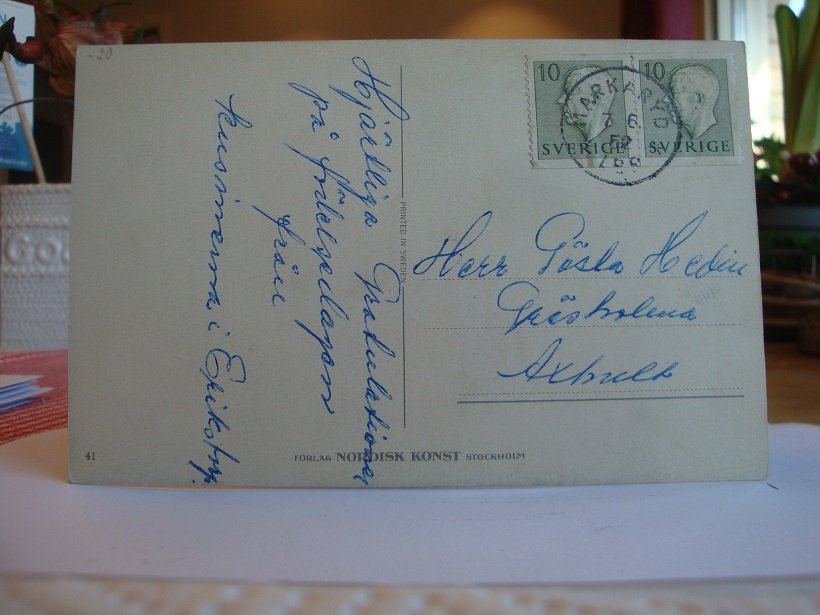 - 20
Hjärtliga Gratulationer
på födelsedagen
från
kusinerna i Erikstorp.
10
10
SVERIGE
SVERIGE
MARKARYD
7 6
52
PRINTED IN SWEDEN
Herr Gösta Hedin
Axhult
41
FÖRLAG NORDISK KONST STOCKHOLM